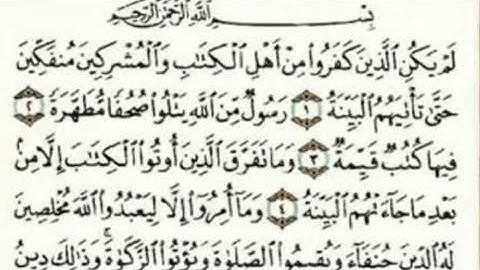 بِسْمِ اللَّهِ الرَّحْمَٰنِ الرَّحِيمِ
لَمْ يَكُنِ الَّذِينَ كَفَرُوا مِنْ أَهْلِ الْكِتَٰبِ وَالْمُشْرِكِينَ مُنفَكِّينَ
حَتَّىٰ تَأْتِيَهُمُ الْبَيِّنَةُ ١ رَسُولٌ مِّنَ اللَّهِ يَتْلُوا صُحُفًا مُّطَهَّرَةً ٢
فِيهَا كُتُبٌ قَيِّمَةٌ ٣ وَمَا تَفَرَّقَ الَّذِينَ أُوتُوا الْكِتَٰبَ إِلَّا مِنۢ
بَعْدِ مَا جَآءَتْهُمُ الْبَيِّنَةُ ٤ وَمَآ أُمِرُوٓا إِلَّا لِيَعْبُدُوا اللَّهَ مُخْلِصِينَ
لَهُ الدِّينَ حُنَفَآءَ وَيُقِيمُوا الصَّلَوٰةَ وَيُؤْتُوا الزَّكَوٰةَ ۚ وَذَٰلِكَ دِينُ